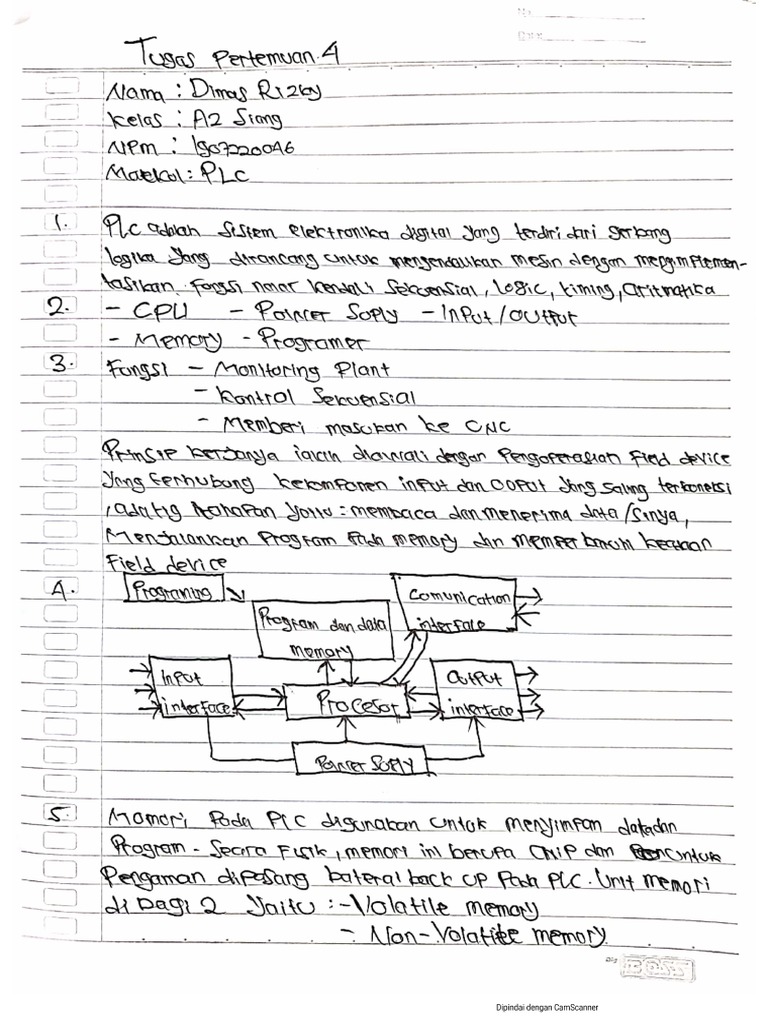 No
Date
Tugas Pertemuan 4
Nama : Dimas Rizky
Kelas : A2 Siang
NPM : 1907220046
Matkul : PLC
1. PLC adalah sistem elektronika digital yang terdiri dari gerbang
logika yang dirancang untuk mengendalikan mesin dengan mengimplemen-
tasikan. Fungsi nalar kendali sekuensial, logic, timing, aritmatika
2. - CPU - Power Suply - Input/Output
- Memory - Programer
3. Fungsi - Monitoring Plant
- Kontrol Sekuensial
- Memberi masukan ke CNC
Prinsip kerjanya ialah diawali dengan Pengoperasian Field device
yang terhubung kekomponen input dan ooput yang saling terkoneksi
, ada tiga tahapan yaitu : membaca dan menerima data/sinya,
Menjalankan Program pada memory dan memperbarui keadaan
Field device
4. Programing
Comunication
interface
Program dan data
memory
Input
interface
Procesor
Output
interface
Power Suply
5. Momori Pada PLC digunakan untuk menyimpan data dan
Program. Secara Fisik, memori ini berupa Chip dan untuk
Pengaman dipasang baterai back up Pada PLC. Unit memori
di bagi 2 yaitu : - Volatile memory
- Non-Volatile memory
Dipindai dengan CamScanner